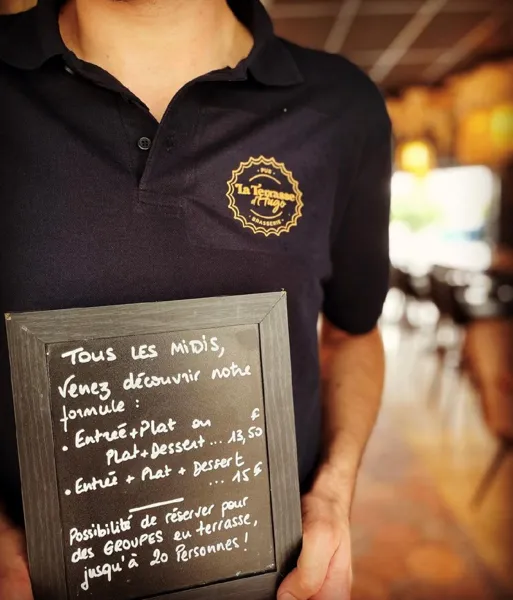 PUB
La Terrasse
d'Hugo
BRASSERIE
TOUS LES MiDiS,
Venez découvrir notre
formule :
• Entrée+Plat ou €
Plat+Dessert ... 13,50
• Entrée + Plat + Dessert
... 15€
Possibilité de réserver pour
des GROUPES en terrasse,
jusqu'à 20 Personnes !